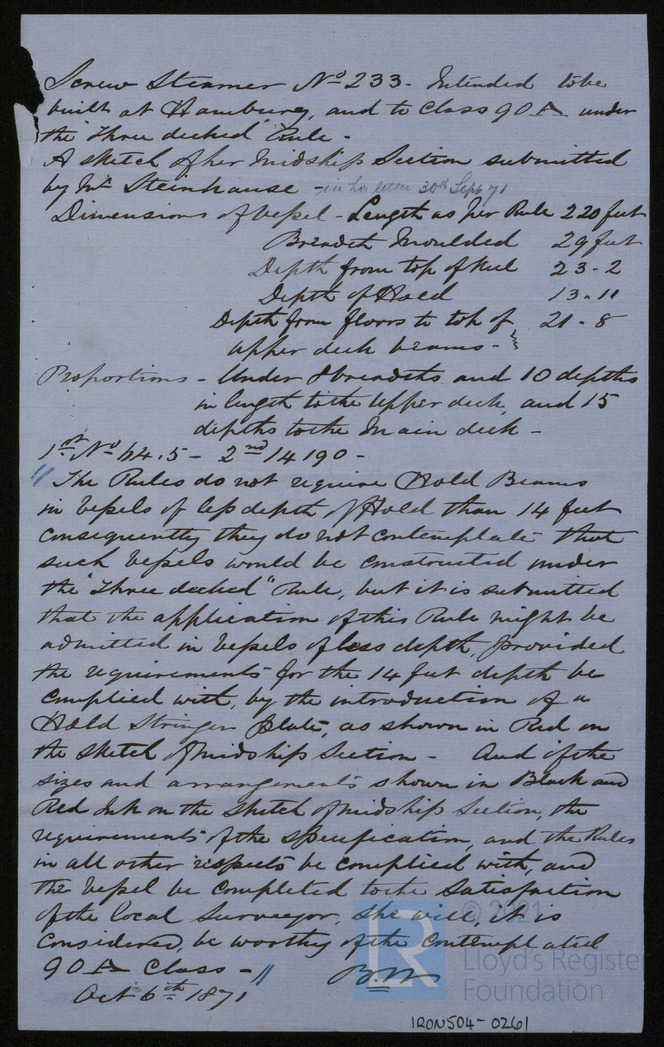 Screw Steamer Nº 233 - Intended to be
built at Hamburg, and to Class 90 A under
the "Three decked" Rule -
A sketch of her Midship Section submitted
by Mr Steinhause - in his letter 30th Sept 71
Dimensions of Vessel - Length as per Rule 220 feet
Breadth Moulded 29 feet
Depth from top of Keel 23-2
Depth of Hold 13-11
Depth from floors to top of 21-8
upper deck beams -
Proportions - Under 8 breadths and 10 depths
in length to the Upper deck, and 15
depths to the Main deck -
1st Nº 64.5 - 2nd 14190 -
"The Rules do not require Hold Beams
in Vessels of less depth of Hold than 14 feet
consequently they do not contemplate that
such Vessels would be constructed under
the "Three decked" Rule, but it is submitted
that the application of this Rule might be
admitted in Vessels of less depth, provided
the requirements for the 14 feet depth be
complied with, by the introduction of a
Hold Stringer Plate, as shown in Red on
the sketch of Midship Section - And if the
sizes and arrangements shown in Black and
Red Ink on the sketch of Midship Section, the
requirements of the Specification, and the Rules
in all other respects be complied with, and
the Vessel be completed to the Satisfaction
of the local Surveyor, she will, it is
considered, be worthy of the contemplated
90 A Class - "
Oct 6th 1871
© 2021
Lloyd's Register
Foundation
LR
IRON504-0261